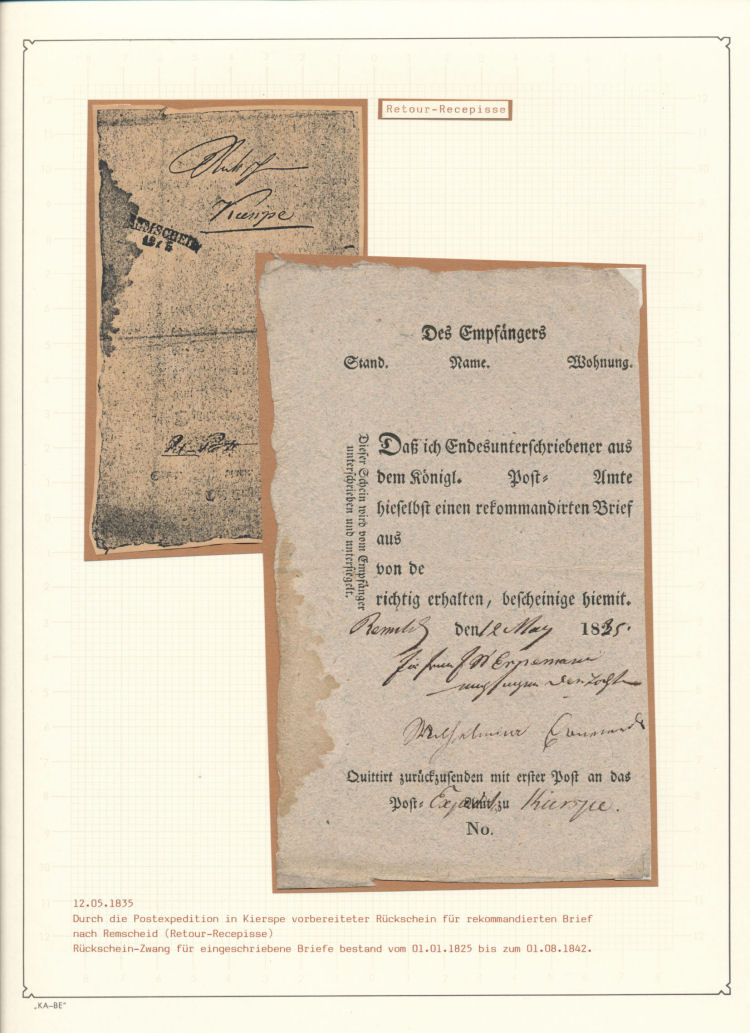 Retour-Recepisse
Kierspe
REMSCHEI
Des Empfängers
Stand. Name. Wohnung.
Dieser Schein wird vom Empfänger
unterschrieben und untersiegelt.
Daß ich Endesunterschriebener aus
dem Königl. Post- Amte
hieselbst einen rekommandirten Brief
aus
von de
richtig erhalten, bescheinige hiemit.
den 12 May 1835.
Wilhelmine
Quittirt zurückzusenden mit erster Post an das
Post- Amt zu Kierspe.
No.
12.05.1835
Durch die Postexpedition in Kierspe vorbereiteter Rückschein für rekommandierten Brief
nach Remscheid (Retour-Recepisse)
Rückschein-Zwang für eingeschriebene Briefe bestand vom 01.01.1825 bis zum 01.08.1842.
„KA-BE"